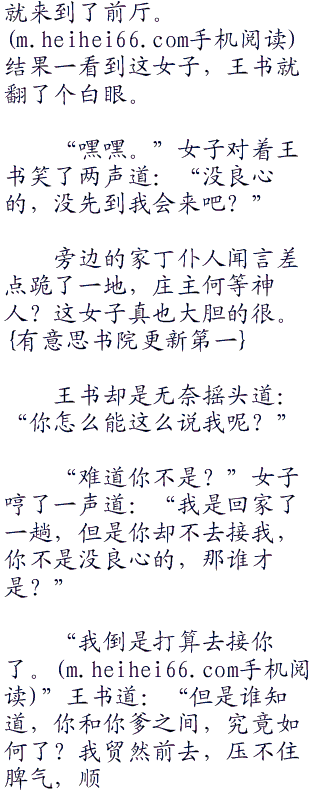 就来到了前厅。
(m.heihei66.com手机阅读)
结果一看到这女子，王书就
翻了个白眼。
“嘿嘿。”女子对着王
书笑了两声道：“没良心
的，没先到我会来吧？”
旁边的家丁仆人闻言差
点跪了一地，庄主何等神
人？这女子真也大胆的很。
{有意思书院更新第一}
王书却是无奈摇头道：
“你怎么能这么说我呢？”
“难道你不是？”女子
哼了一声道：“我是回家了
一趟，但是你却不去接我，
你不是没良心的，那谁才
是？”
“我倒是打算去接你
了。(m.heihei66.com手机阅
读)”王书道：“但是谁知
道，你和你爹之间，究竟如
何了？我贸然前去，压不住
脾气，顺